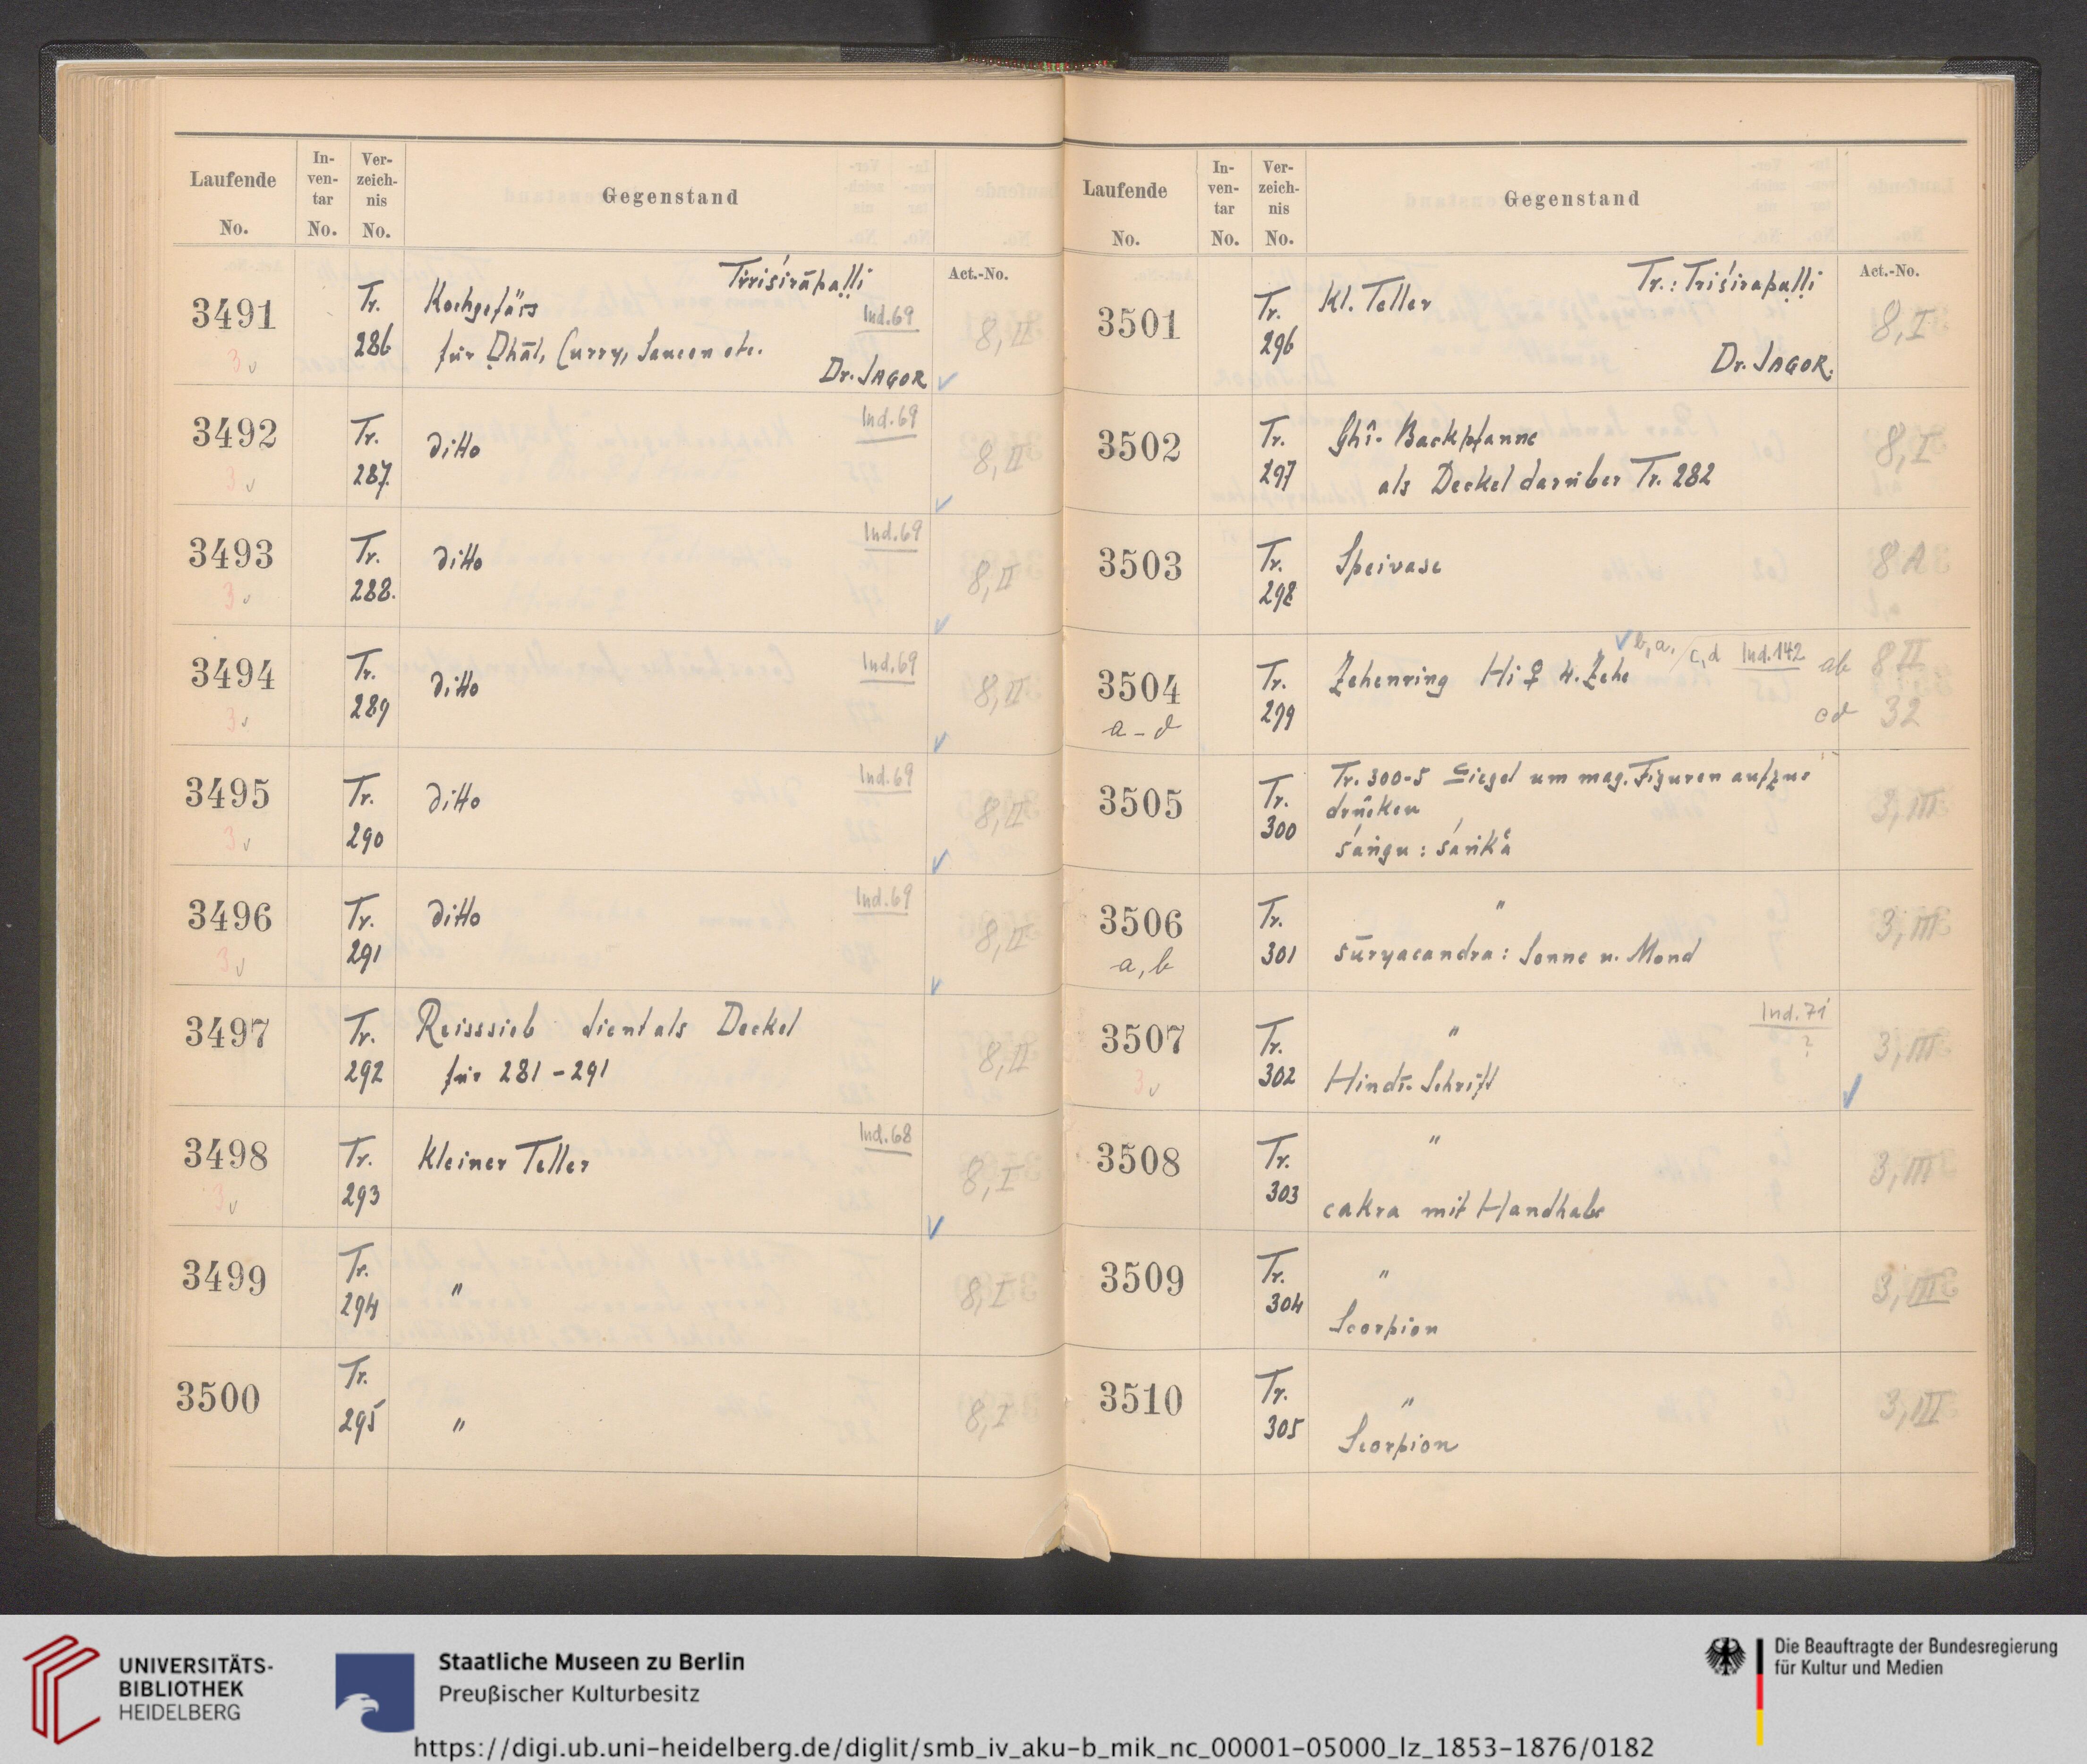 Laufende No.
In-ven-tar No.
Ver-zeich-nis No.
Gegenstand
Act.-No.
Triśirāpaḷḷi
3491 Tr. 286 Kochgefäss Ind. 69 8,II
für Ḍhāl, Curry, Saucen etc.
Dr. JAGOR
3 v
3492 Tr. 287. ditto Ind. 69 8,II
3 v
3493 Tr. 288. ditto Ind. 69 8,II
3 v
3494 Tr. 289 ditto Ind. 69 8,II
3 v
3495 Tr. 290 ditto Ind. 69 8,II
3 v
3496 Tr. 291 ditto Ind. 69 8,II
3 v
3497 Tr. 292 Reisssieb dient als Deckel 8,II
für 281-291
3498 Tr. 293 Kleiner Teller Ind. 68 8,I
3 v
3499 Tr. 294 " 8,I
3500 Tr. 295 " 8,I
Laufende No.
In-ven-tar No.
Ver-zeich-nis No.
Gegenstand
Act.-No.
Tr.: Triśirapaḷḷi
3501 Tr. 296 Kl. Teller 8,I
Dr. JAGOR.
3502 Tr. 297 Ghî-Backpfanne 8,I
als Deckel darüber Tr. 282
3503 Tr. 298 Speivase 8 A
3504 Tr. 299 Zehenring Hi ♀ 4. Zehe b, a, / c, d Ind. 142 ab 8 II
a-d cd 32
3505 Tr. 300 Tr. 300-5 Siegel um mag. Figuren aufzu- 3,III
drücken
śaṅgu: śaṅkā
3506 Tr. 301 " 3,III
a, b sūryacandra: Sonne u. Mond
3507 Tr. 302 " Ind. 71 ? 3,III
3 v Hindī-Schrift
3508 Tr. 303 " 3,III
cakra mit Handhabe
3509 Tr. 304 " 3,III
Scorpion
3510 Tr. 305 " 3,III
Scorpion
UNIVERSITÄTS-
BIBLIOTHEK
HEIDELBERG
Staatliche Museen zu Berlin
Preußischer Kulturbesitz
Die Beauftragte der Bundesregierung
für Kultur und Medien
https://digi.ub.uni-heidelberg.de/diglit/smb_iv_aku-b_mik_nc_00001-05000_lz_1853-1876/0182